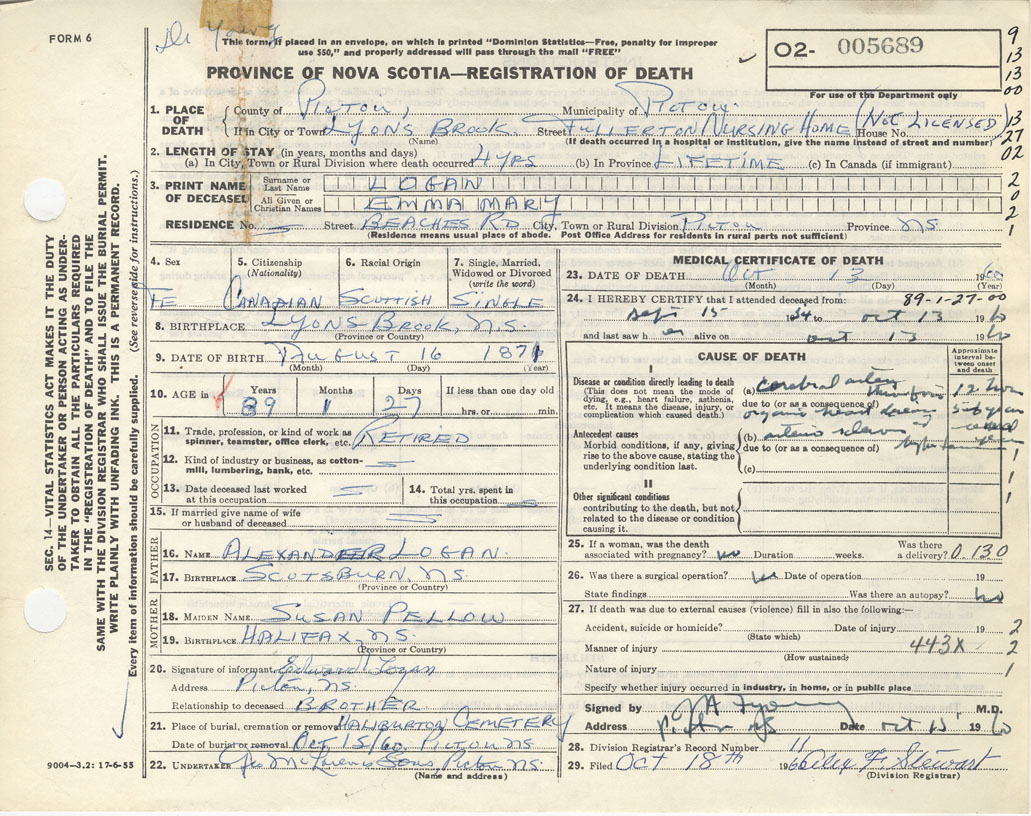 FORM 6
Dr Young
This form, if placed in an envelope, on which is printed "Dominion Statistics—Free, penalty for improper
use $50," and properly addressed will pass through the mail "FREE"
PROVINCE OF NOVA SCOTIA—REGISTRATION OF DEATH
O2- 005689
For use of the Department only
9
13
13
00
13
27
02
2
0
2
1
1. PLACE OF DEATH
County of Pictou, Municipality of Pictou
If in City or Town Lyons Brook Street Fullerton Nursing Home House No. (Not Licensed)
(Name) (If death occurred in a hospital or institution, give the name instead of street and number)
2. LENGTH OF STAY (in years, months and days)
(a) In City, Town or Rural Division where death occurred 4 yrs (b) In Province Lifetime (c) In Canada (if immigrant)
3. PRINT NAME OF DECEASED
Surname or Last Name LOGAN
All Given or Christian Names EMMA MARY
RESIDENCE No. Street Beaches Rd City, Town or Rural Division Pictou Province N.S.
(Residence means usual place of abode. Post Office Address for residents in rural parts not sufficient)
4. Sex 5. Citizenship (Nationality) 6. Racial Origin 7. Single, Married, Widowed or Divorced (write the word)
Fe Canadian Scottish Single
8. BIRTHPLACE Lyons Brook, N.S.
(Province or Country)
9. DATE OF BIRTH August 16 1871
(Month) (Day) (Year)
10. AGE in Years Months Days If less than one day old
89 1 27 hrs. or min.
OCCUPATION
11. Trade, profession, or kind of work as spinner, teamster, office clerk, etc. Retired
12. Kind of industry or business, as cotton-mill, lumbering, bank, etc.
13. Date deceased last worked at this occupation
14. Total yrs. spent in this occupation
15. If married give name of wife or husband of deceased
FATHER
16. NAME Alexander Logan
17. BIRTHPLACE Scotsburn, N.S.
(Province or Country)
MOTHER
18. MAIDEN NAME Susan Pellow
19. BIRTHPLACE Halifax, N.S.
(Province or Country)
20. Signature of informant Edward Logan
Address Pictou, N.S.
Relationship to deceased Brother
21. Place of burial, cremation or removal Haliburton Cemetery
Date of burial or removal Oct 15/60 Pictou NS
22. UNDERTAKER Sons, Pictou N.S.
(Name and address)
MEDICAL CERTIFICATE OF DEATH
23. DATE OF DEATH Oct 13 1960
(Month) (Day) (Year)
24. I HEREBY CERTIFY that I attended deceased from: 89-1-27-00
Sept 15 to Oct 13 1960
and last saw h er alive on Oct 13 1960
CAUSE OF DEATH
Approximate interval between onset and death
I
Disease or condition directly leading to death
(This does not mean the mode of dying, e.g., heart failure, asthenia, etc. It means the disease, injury, or complication which caused death.)
(a) cerebral artery thrombosis 12
due to (or as a consequence of)
organic heart disease
Antecedent causes
Morbid conditions, if any, giving rise to the above cause, stating the underlying condition last.
(b) arterio sclerosis
due to (or as a consequence of)
(c)
1
1
1
II
Other significant conditions
contributing to the death, but not related to the disease or condition causing it.
25. If a woman, was the death associated with pregnancy? no Duration weeks. Was there a delivery? 0.130
26. Was there a surgical operation? no Date of operation 19
State findings Was there an autopsy? no
27. If death was due to external causes (violence) fill in also the following:—
Accident, suicide or homicide? Date of injury 19 2
(State which)
Manner of injury 443X 2
(How sustained)
Nature of injury 1
Specify whether injury occurred in industry, in home, or in public place
Signed by Young M.D.
Address Pictou NS Date Oct 13, 1960
28. Division Registrar's Record Number 11
29. Filed Oct 18th 196 F. Stewart
(Division Registrar)
SEC. 14—VITAL STATISTICS ACT MAKES IT THE DUTY
OF THE UNDERTAKER OR PERSON ACTING AS UNDER-
TAKER TO OBTAIN ALL THE PARTICULARS REQUIRED
IN THE "REGISTRATION OF DEATH" AND TO FILE THE
SAME WITH THE DIVISION REGISTRAR WHO SHALL ISSUE THE BURIAL PERMIT.
WRITE PLAINLY WITH UNFADING INK. THIS IS A PERMANENT RECORD.
Every item of information should be carefully supplied. (See reverse side for instructions.)
9004—3.2: 17-6-55